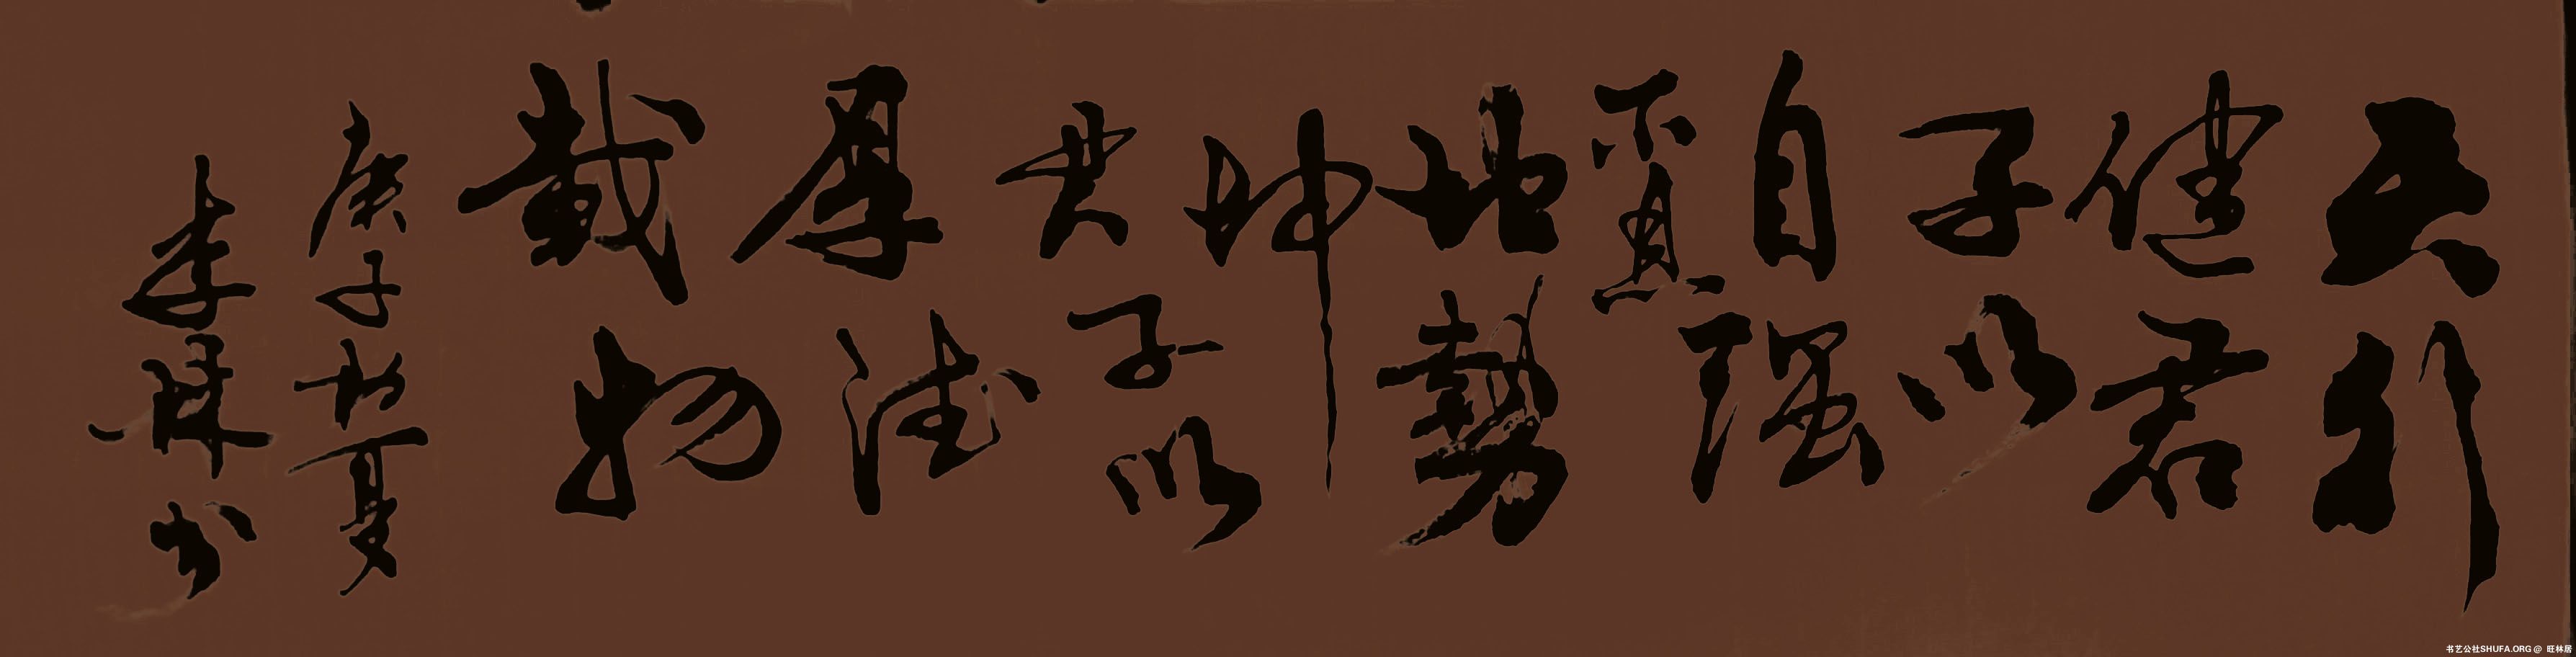 天行
健君
子以
自強
不息
地勢
坤
君子以
厚德
載物
庚子初夏
李林書
书艺公社SHUFA.ORG @ 旺林居